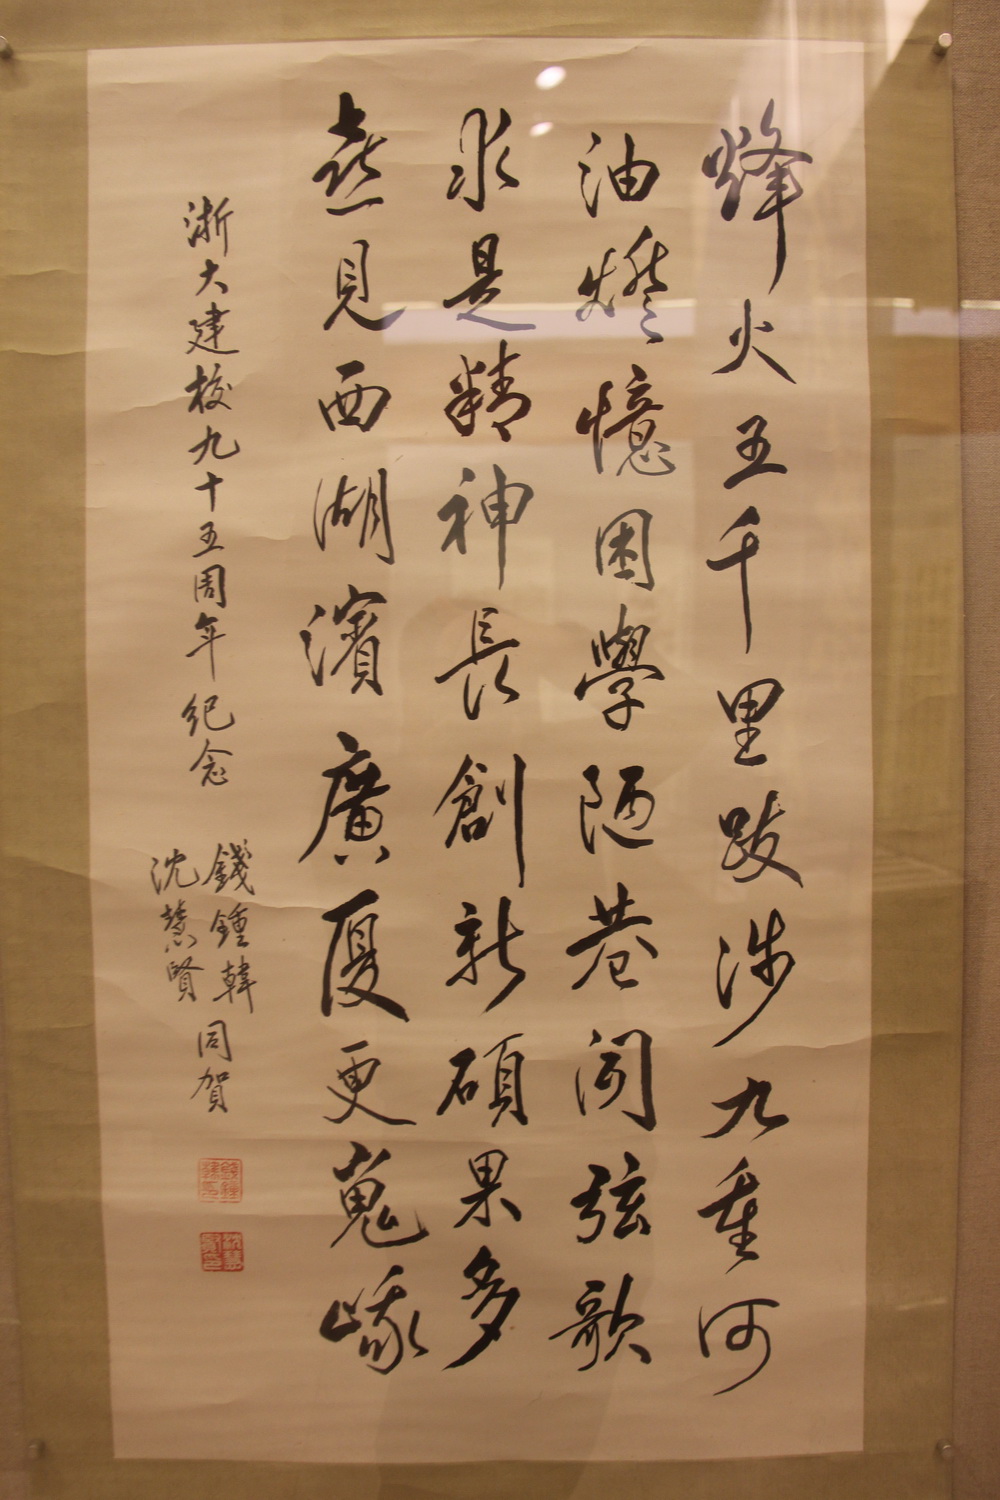 烽火五千里跋涉九重河
油燈憶困學陋巷聞弦歌
求是精神長創新碩果多
喜見西湖濱廣厦更嵬峨
浙大建校九十五周年紀念
錢鍾韓
沈慧賢
同賀